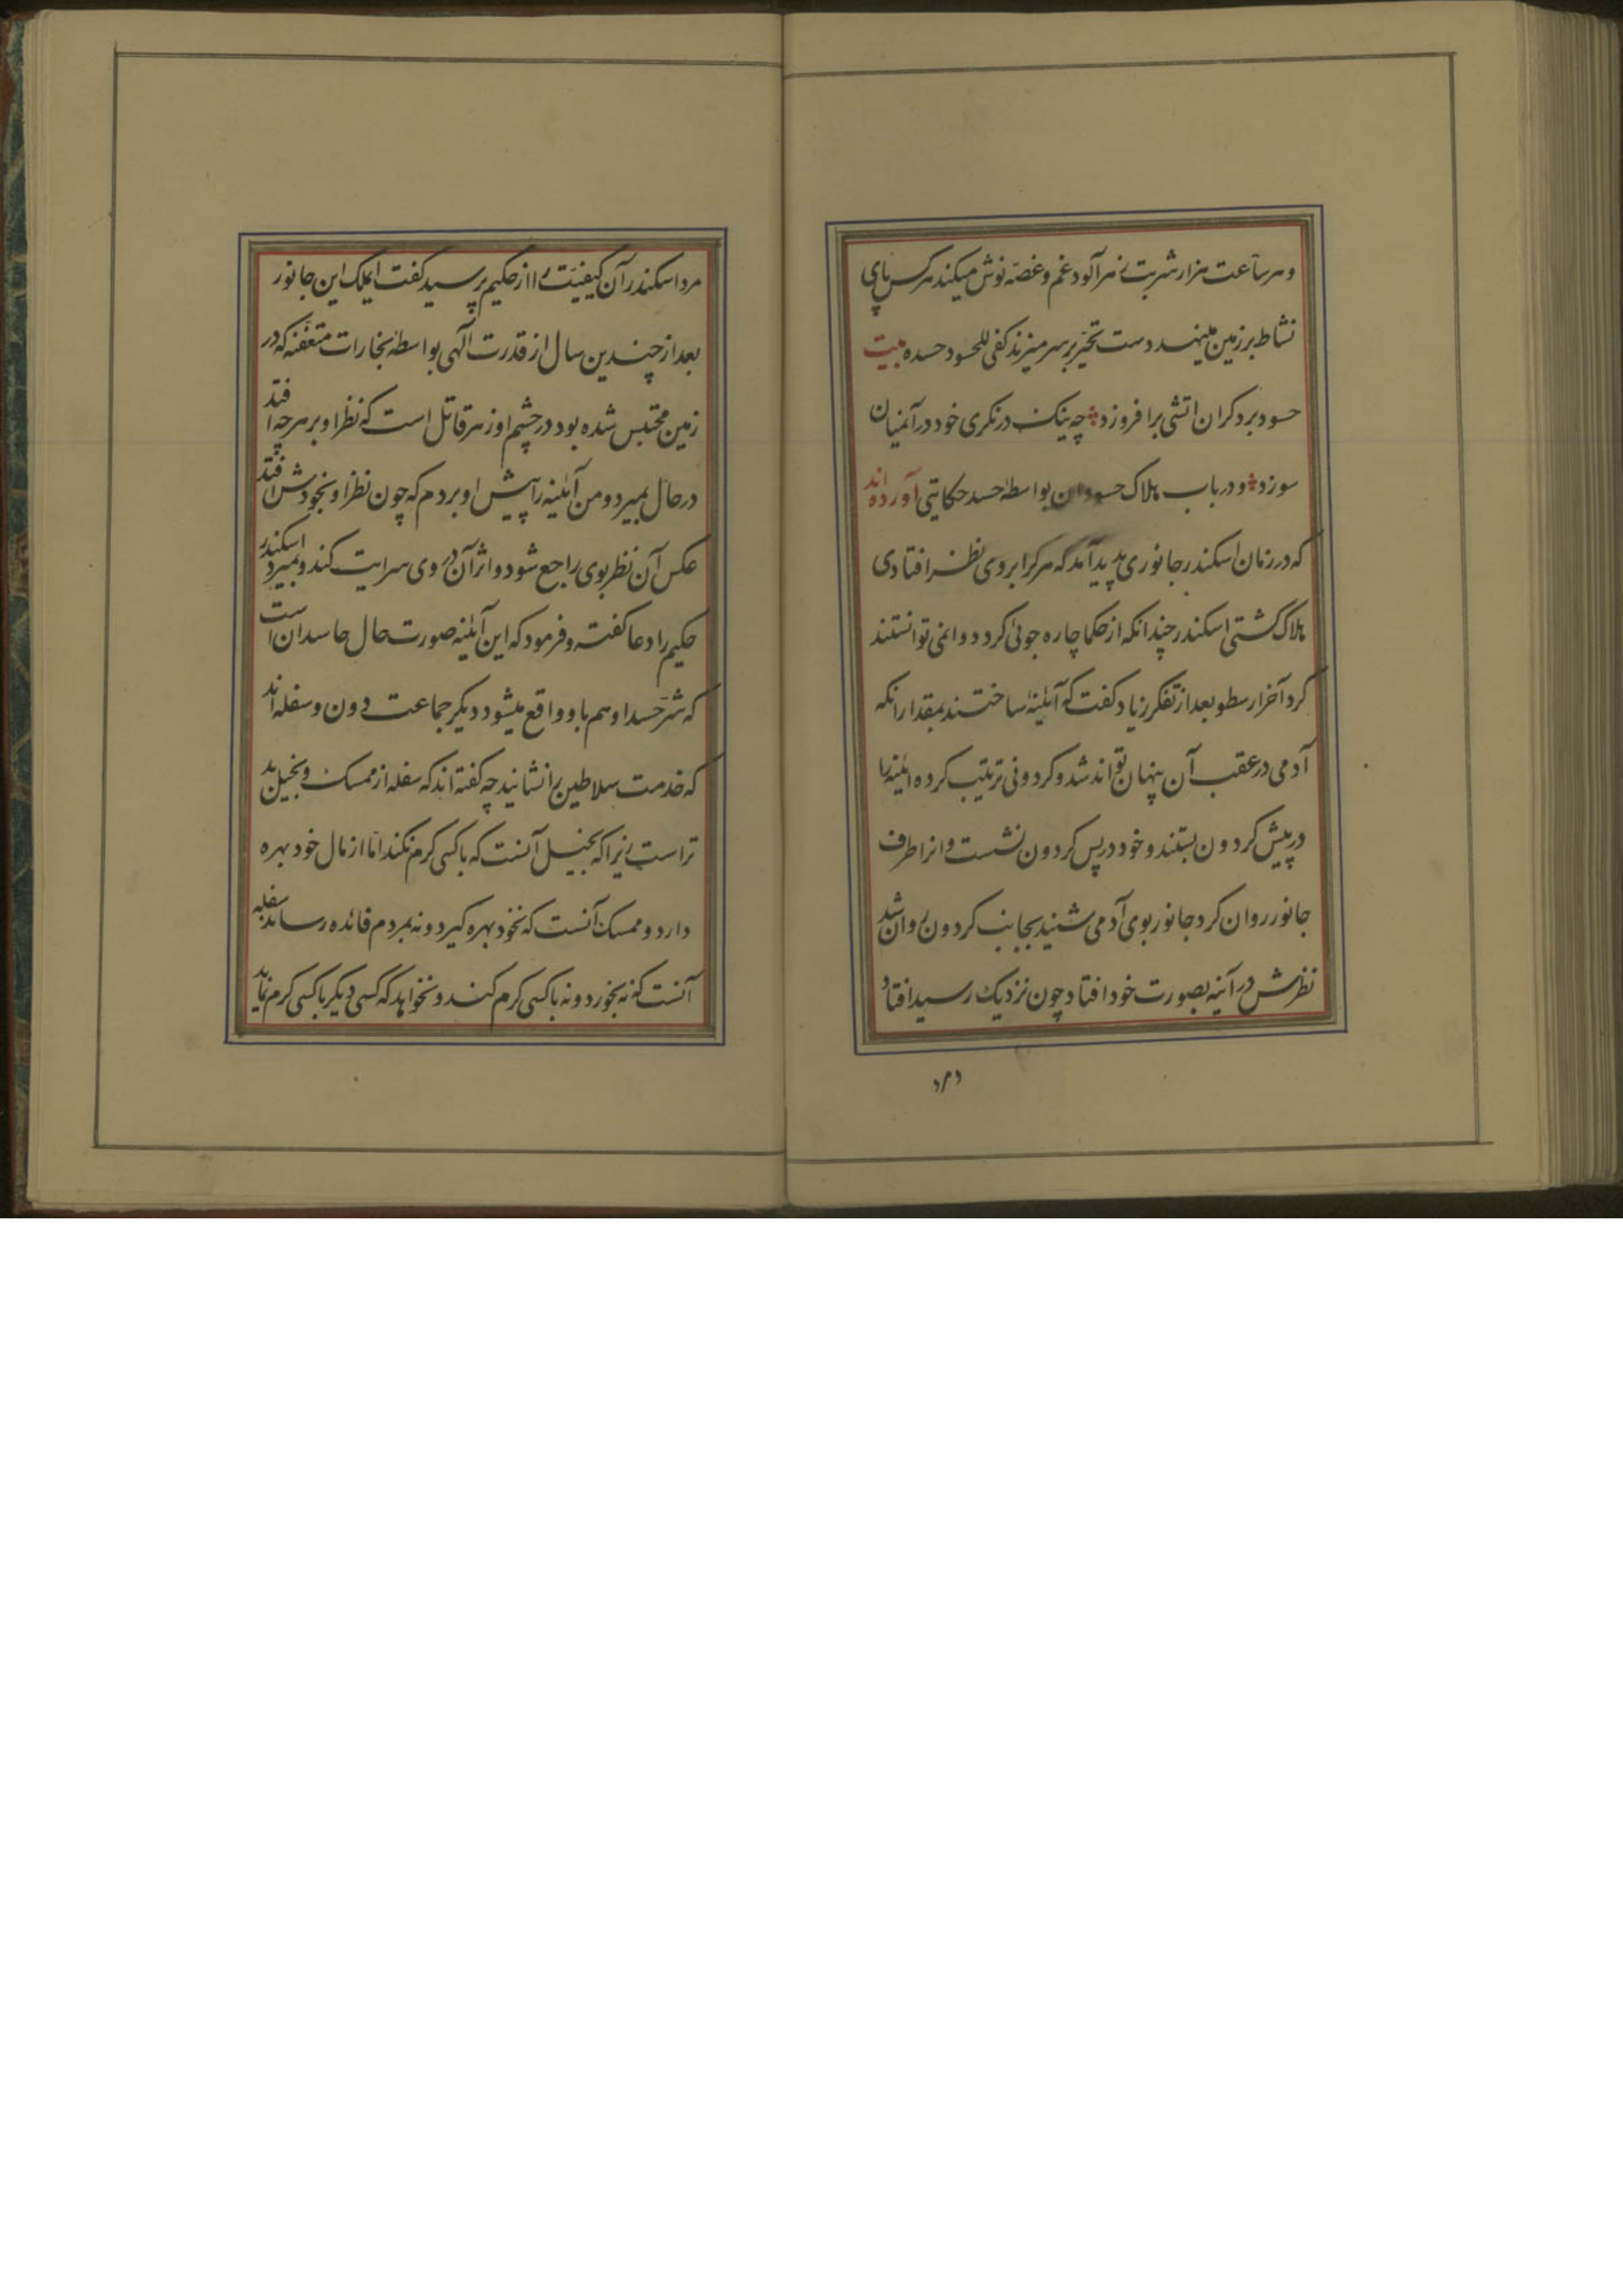 و هر ساعت هزار شربت زهر آلود غم و غصّه نوش میکند هر کس پای
نشاط بر زمین مینهد دست تحیّر بر سر میزند کفی للحسود حسده بیت
حسود بر دکران اتشی برافروزد چه نیک در نکری خود در آنمیان
سوزد و در باب هلاک حسودان بواسطهٔ حسد حکایتی آورده اند
که در زمان اسکندر جانوری پدید آمد که هر کرا بر وی نظر افتادی
هلاک گشتی اسکندر چندانکه از حکما چاره جوئی کرد دوا نمی توانستند
کرد آخر ارسطو بعد از تفکر زیاد کفت که آئینهٔ ساختند بمقدار انکه
آدمی در عقب آن پنهان تواند شد و کردونی ترتیب کرده ائینه را
در پیش کردون بستند و خود در پس کردون نشست و انرا طرف
جانور روان کرد جانور بوی آدمی شنید بجانب کردون روان شد
نظرش در آئنه بصورت خود افتاد چون نزدیک رسید افتاد
مرد اسکندر آن کیفیّت را از حکیم پرسید کفت ایملک این جانور
بعد از چندین سال از قدرت آلهی بواسطهٔ بخارات متعفّنه که در
زمین محتبس شده بود در چشم او زهر قاتل است که نظر او بر هر چه افتد
در حال بمیرد و من آئینه را پیش او بردم که چون نظر او بخودش افتد
عکس آن نظر بوی راجع شود و اثر آن در وی سرایت کند و بمیرد اسکندر
حکیم را دعا کفت و فرمود که این آئینه صورت حال حاسدان است
که شرّ حسد او هم باو واقع میشود دیکر جماعت دون و سفله اند
که خدمت سلاطین را نشانید چه کفته اند که سفله از ممسک و بخیل بد
تر است زیرا که بخیل آنست که با کسی کرم نکند امّا از مال خود بهره
دارد و ممسک آنست که نخود بهره کیرد و نه بمردم فائده رساند سفله
آنست که نه بخورد و نه با کسی کرم کند و نخواهد که کسی دیکر با کسی کرم نماید